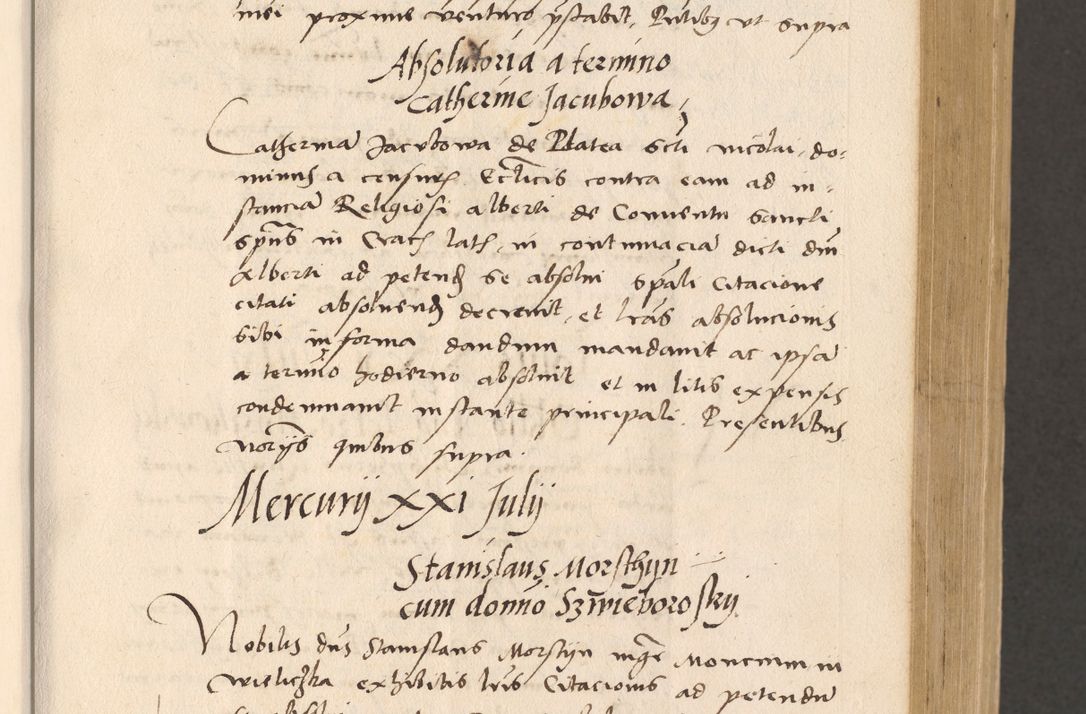 mei proxime venturo pstabit. Pntibꝫ vt supra
Absolutoria a termino
Catherine Jacubowa
Catherina Jacubowa de Platea Scti nicolai, do-
minus a censuris Ecclicis contra eam ad in-
stancia Religiosi alberti de Conuentu Sancti
Spüs in Crac latis, in contumacia dicti dni
alberti ad petend se absolui spali Citacione
citati absoluend decreuit, et lras absolucionis
sibi in forma dandum mandauit ac ipsa
a termino hodierno absoluit et in litis expensis
condemnauit instante principali. Presentibus
Norijs quibus supra.
Mercurij xxi Julij
Stanislaus Morsthyn
cum domno Szwieborosky
Nobilis dns Stanislaus Morstyn mgr Moncium in
Wieliczka exhibitis lris Citacionis ad petendu